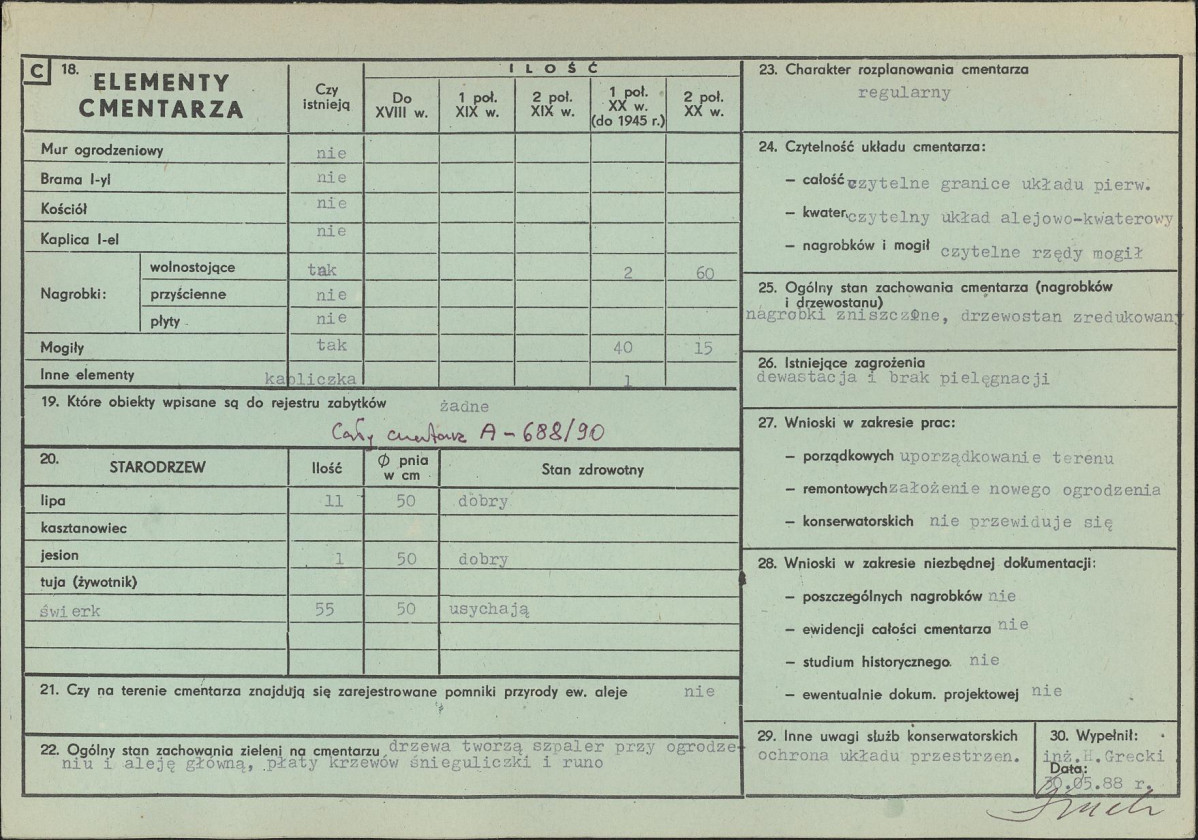 C 18. ELEMENTY CMENTARZA
Czy istnieją
ILOŚĆ
Do XVIII w.
1 poł. XIX w.
2 poł. XIX w.
1 poł. XX w. (do 1945 r.)
2 poł. XX w.
Mur ogrodzeniowy nie
Brama I-yl nie
Kościół nie
Kaplica I-el nie
Nagrobki:
wolnostojące tak 2 60
przyścienne nie
płyty nie
Mogiły tak 40 15
Inne elementy kapliczka 1
19. Które obiekty wpisane są do rejestru zabytków żadne
Cały cmentarz A-688/90
20. STARODRZEW Ilość Ø pnia w cm Stan zdrowotny
lipa 11 50 dobry
kasztanowiec
jesion 1 50 dobry
tuja (żywotnik)
świerk 55 50 usychają
21. Czy na terenie cmentarza znajdują się zarejestrowane pomniki przyrody ew. aleje nie
22. Ogólny stan zachowania zieleni na cmentarzu drzewa tworzą szpaler przy ogrodze-
niu i aleję główną, płaty krzewów śnieguliczki i runo
23. Charakter rozplanowania cmentarza
regularny
24. Czytelność układu cmentarza:
– całość czytelne granice układu pierw.
– kwater czytelny układ alejowo-kwaterowy
– nagrobków i mogił czytelne rzędy mogił
25. Ogólny stan zachowania cmentarza (nagrobków
i drzewostanu)
nagrobki zniszczone, drzewostan zredukowany
26. Istniejące zagrożenia
dewastacja i brak pielęgnacji
27. Wnioski w zakresie prac:
– porządkowych uporządkowanie terenu
– remontowych założenie nowego ogrodzenia
– konserwatorskich nie przewiduje się
28. Wnioski w zakresie niezbędnej dokumentacji:
– poszczególnych nagrobków nie
– ewidencji całości cmentarza nie
– studium historycznego. nie
– ewentualnie dokum. projektowej nie
29. Inne uwagi służb konserwatorskich
ochrona układu przestrzen.
30. Wypełnił:
inż.H.Grecki
Data:
30.05.88 r.